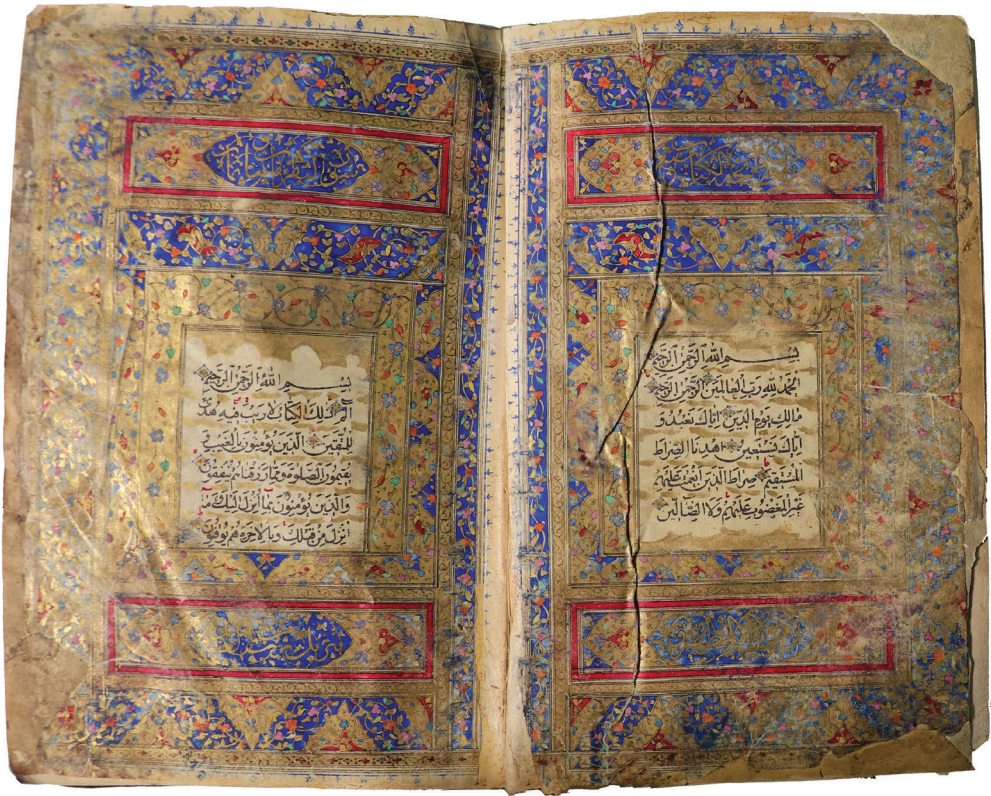 بِسْمِ اللهِ الرَّحْمٰنِ الرَّحِيمِ
اَلْحَمْدُ لِلّٰهِ رَبِّ الْعَالَمِينَ الرَّحْمٰنِ الرَّحِيمِ
مَالِكِ يَوْمِ الدِّينِ اِيَّاكَ نَعْبُدُ وَ
اِيَّاكَ نَسْتَعِينُ اِهْدِنَا الصِّرَاطَ
الْمُسْتَقِيمَ صِرَاطَ الَّذِينَ اَنْعَمْتَ عَلَيْهِمْ
غَيْرِ الْمَغْضُوبِ عَلَيْهِمْ وَلَا الضَّالِّينَ
سورة البقرة
بِسْمِ اللهِ الرَّحْمٰنِ الرَّحِيمِ
الٓمٓ ذٰلِكَ الْكِتَابُ لَا رَيْبَ فِيهِ هُدًى
لِلْمُتَّقِينَ الَّذِينَ يُؤْمِنُونَ بِالْغَيْبِ وَ
يُقِيمُونَ الصَّلٰوةَ وَمِمَّا رَزَقْنَاهُمْ يُنْفِقُونَ
وَالَّذِينَ يُؤْمِنُونَ بِمَا اُنْزِلَ اِلَيْكَ وَمَا
اُنْزِلَ مِنْ قَبْلِكَ وَبِالْاٰخِرَةِ هُمْ يُوقِنُونَ